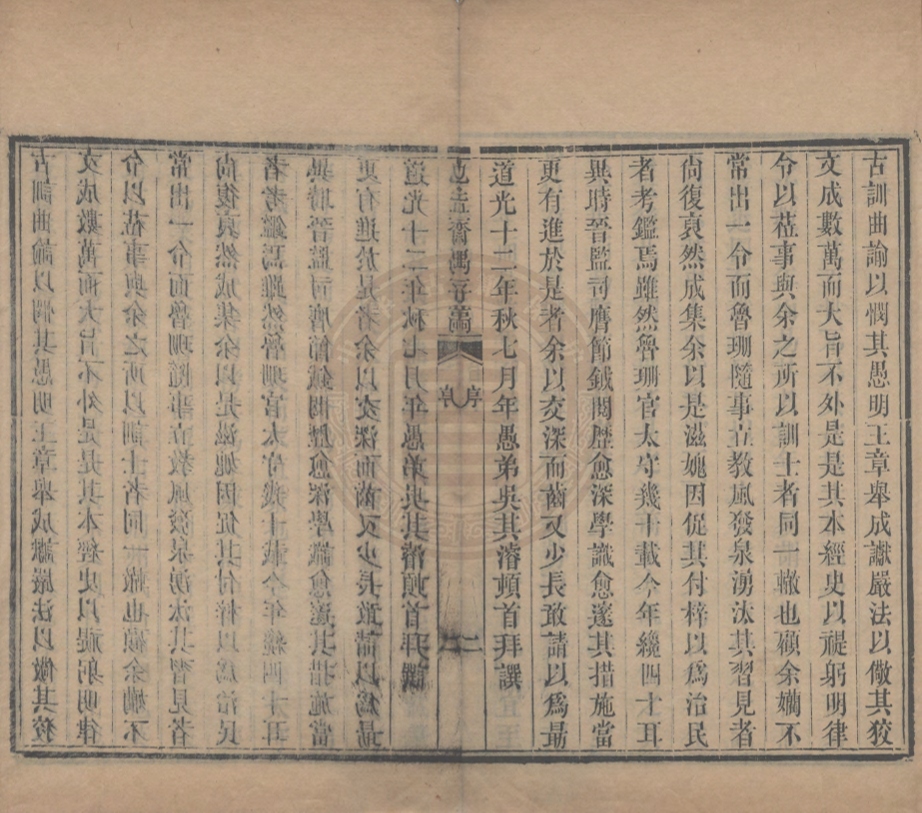 古訓曲諭以憫其愚明王章舉成讞嚴法以儆其狡
文成數萬而大旨不外是是其本經史以禔躬明律
令以蒞事與余之所以訓士者同一轍也顧余嬾不
常出一令而魯珊隨事立教風發泉湧汰其習見者
尙復裒然成集余以是滋媿因促其付梓以爲治民
者考鑑焉雖然魯珊官太守幾十載今年纔四十耳
異時晉監司膺節鉞閱歷愈深學識愈邃其措施當
更有進於是者余以交深而齒又少長敢請以爲勗
道光十二年秋七月年愚弟吳其濬頓首拜譔
齋偶存藁
序
二